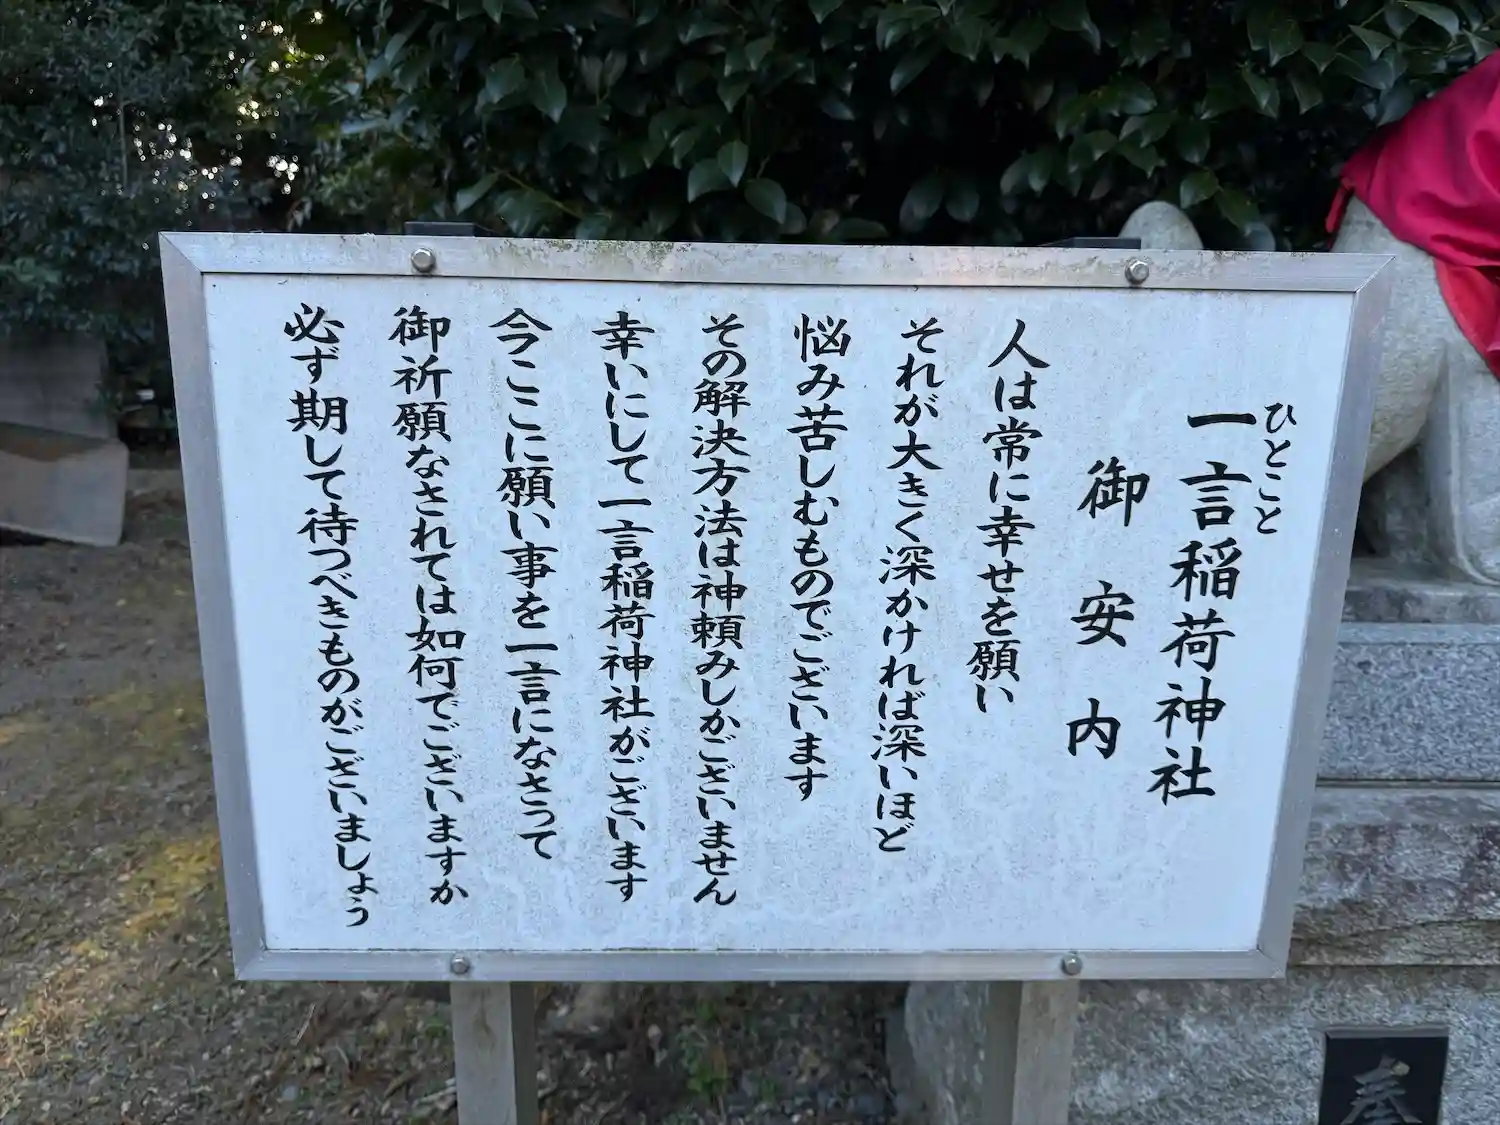 ひとこと
一言稲荷神社
御安内
人は常に幸せを願い
それが大きく深かければ深いほど
悩み苦しむものでございます
その解決方法は神頼みしかございません
幸いにして一言稲荷神社がございます
今ここに願い事を一言になさって
御祈願なされては如何でございますか
必ず期して待つべきものがございましょう